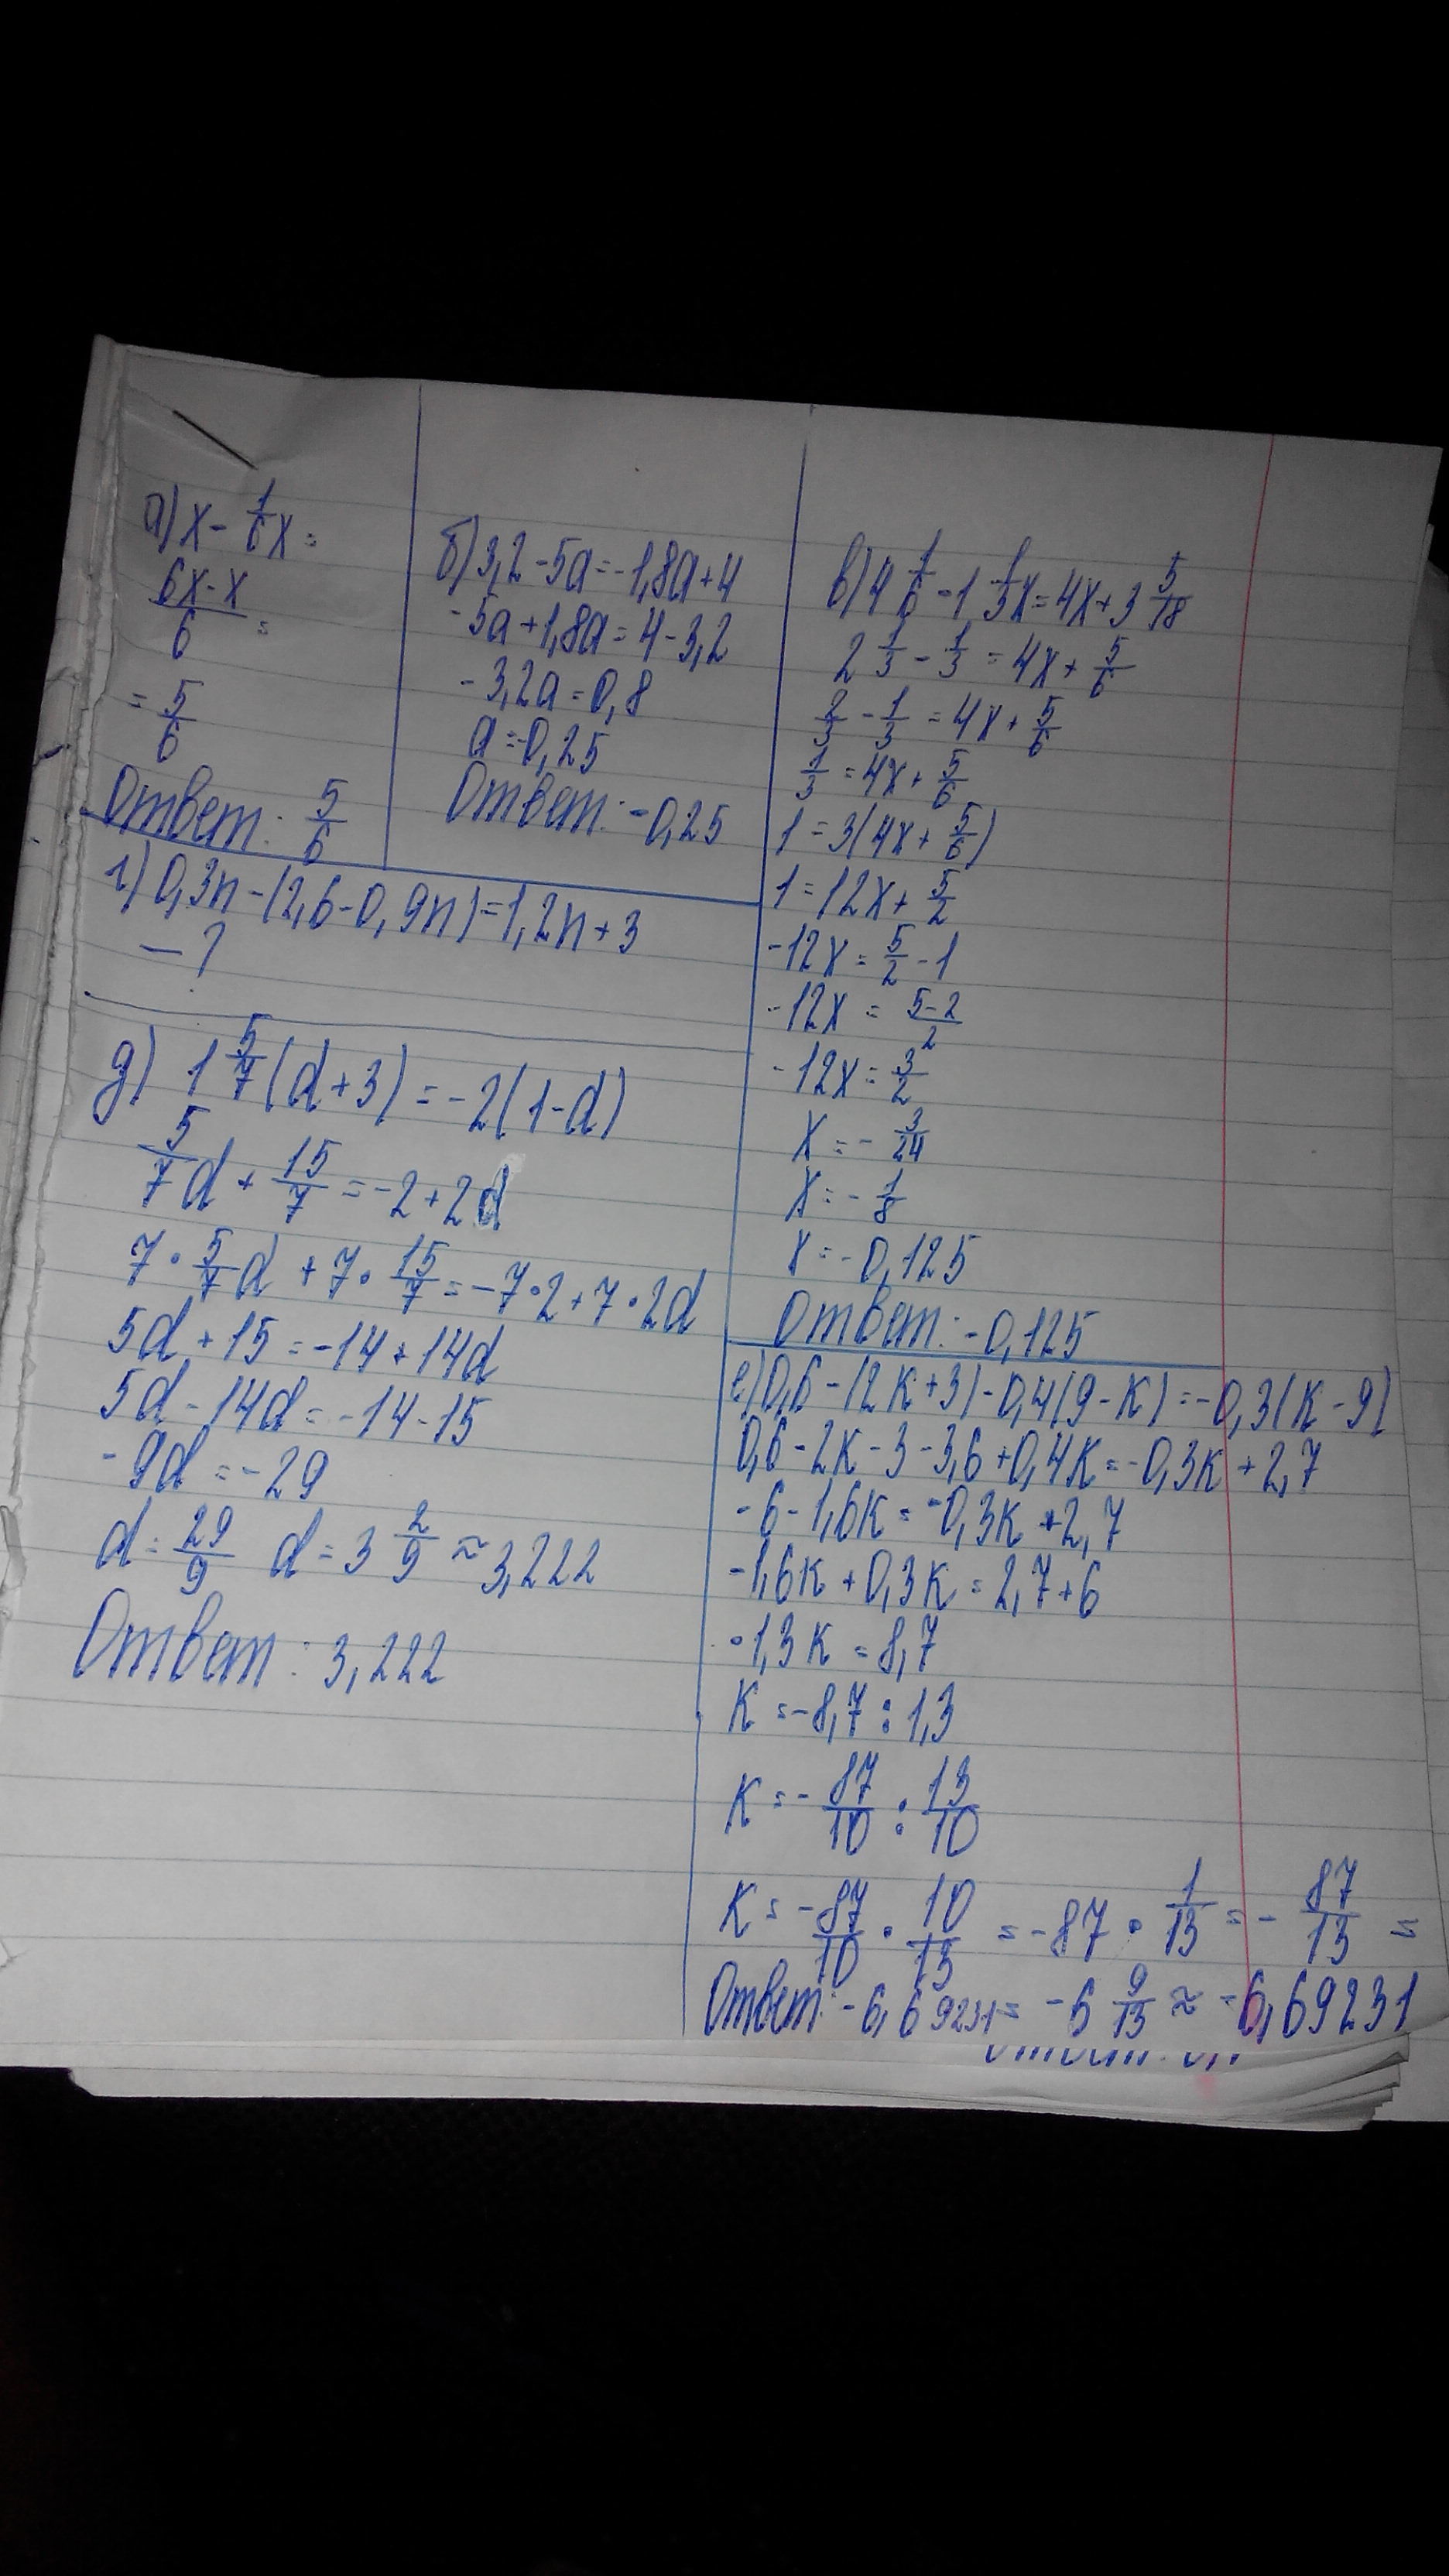 а) x - 1/6 x =
6x - x / 6 =
= 5/6
Ответ: 5/6
б) 3,2 - 5a = -1,8a + 4
-5a + 1,8a = 4 - 3,2
-3,2a = 0,8
a = -0,25
Ответ: -0,25
в) 4 1/6 - 1 1/3 x = 4x + 3 5/18
2 1/3 - 1/3 = 4x + 5/6
2/3 - 1/3 = 4x + 5/6
1/3 = 4x + 5/6
1 = 3(4x + 5/6)
1 = 12x + 5/2
-12x = 5/2 - 1
-12x = 5-2 / 2
-12x = 3/2
x = - 3/24
x = - 1/8
x = -0,125
Ответ: -0,125
г) 0,3n - (2,6 - 0,9n) = 1,2n + 3
— ?
д) 1 5/7 (d + 3) = -2(1 - d)
5/7 d + 15/7 = -2 + 2d
7 · 5/7 d + 7 · 15/7 = -7 · 2 + 7 · 2d
5d + 15 = -14 + 14d
5d - 14d = -14 - 15
-9d = -29
d = 29/9 d = 3 2/9 ≈ 3,222
Ответ: 3,222
е) 0,6 - (2к + 3) - 0,4(9 - к) = -0,3(к - 9)
0,6 - 2к - 3 - 3,6 + 0,4к = -0,3к + 2,7
-6 - 1,6к = -0,3к + 2,7
-1,6к + 0,3к = 2,7 + 6
-1,3к = 8,7
к = -8,7 : 1,3
к = - 87/10 : 13/10
к = - 87/10 · 10/13 = -87 · 1/13 = - 87/13 =
Ответ: -6,69231 = -6 9/13 ≈ -6,69231